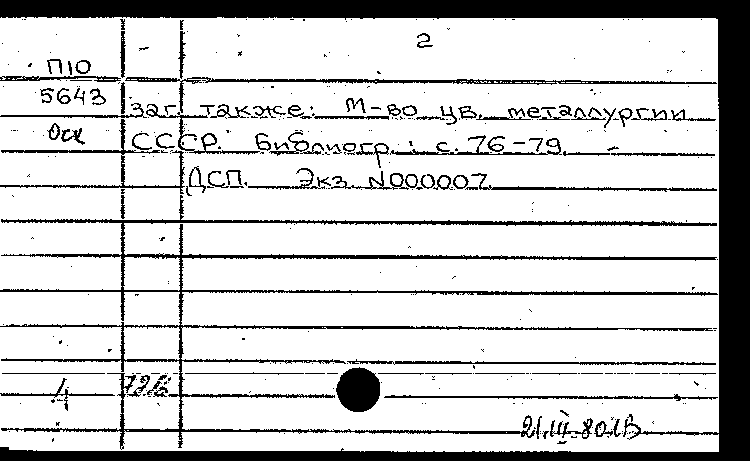 2
П10
5643 заг. также: М-во цв. металлургии
Оск СССР. Библиогр.: с. 76-79. -
ДСП. Экз. N000007.
4
21.III.80